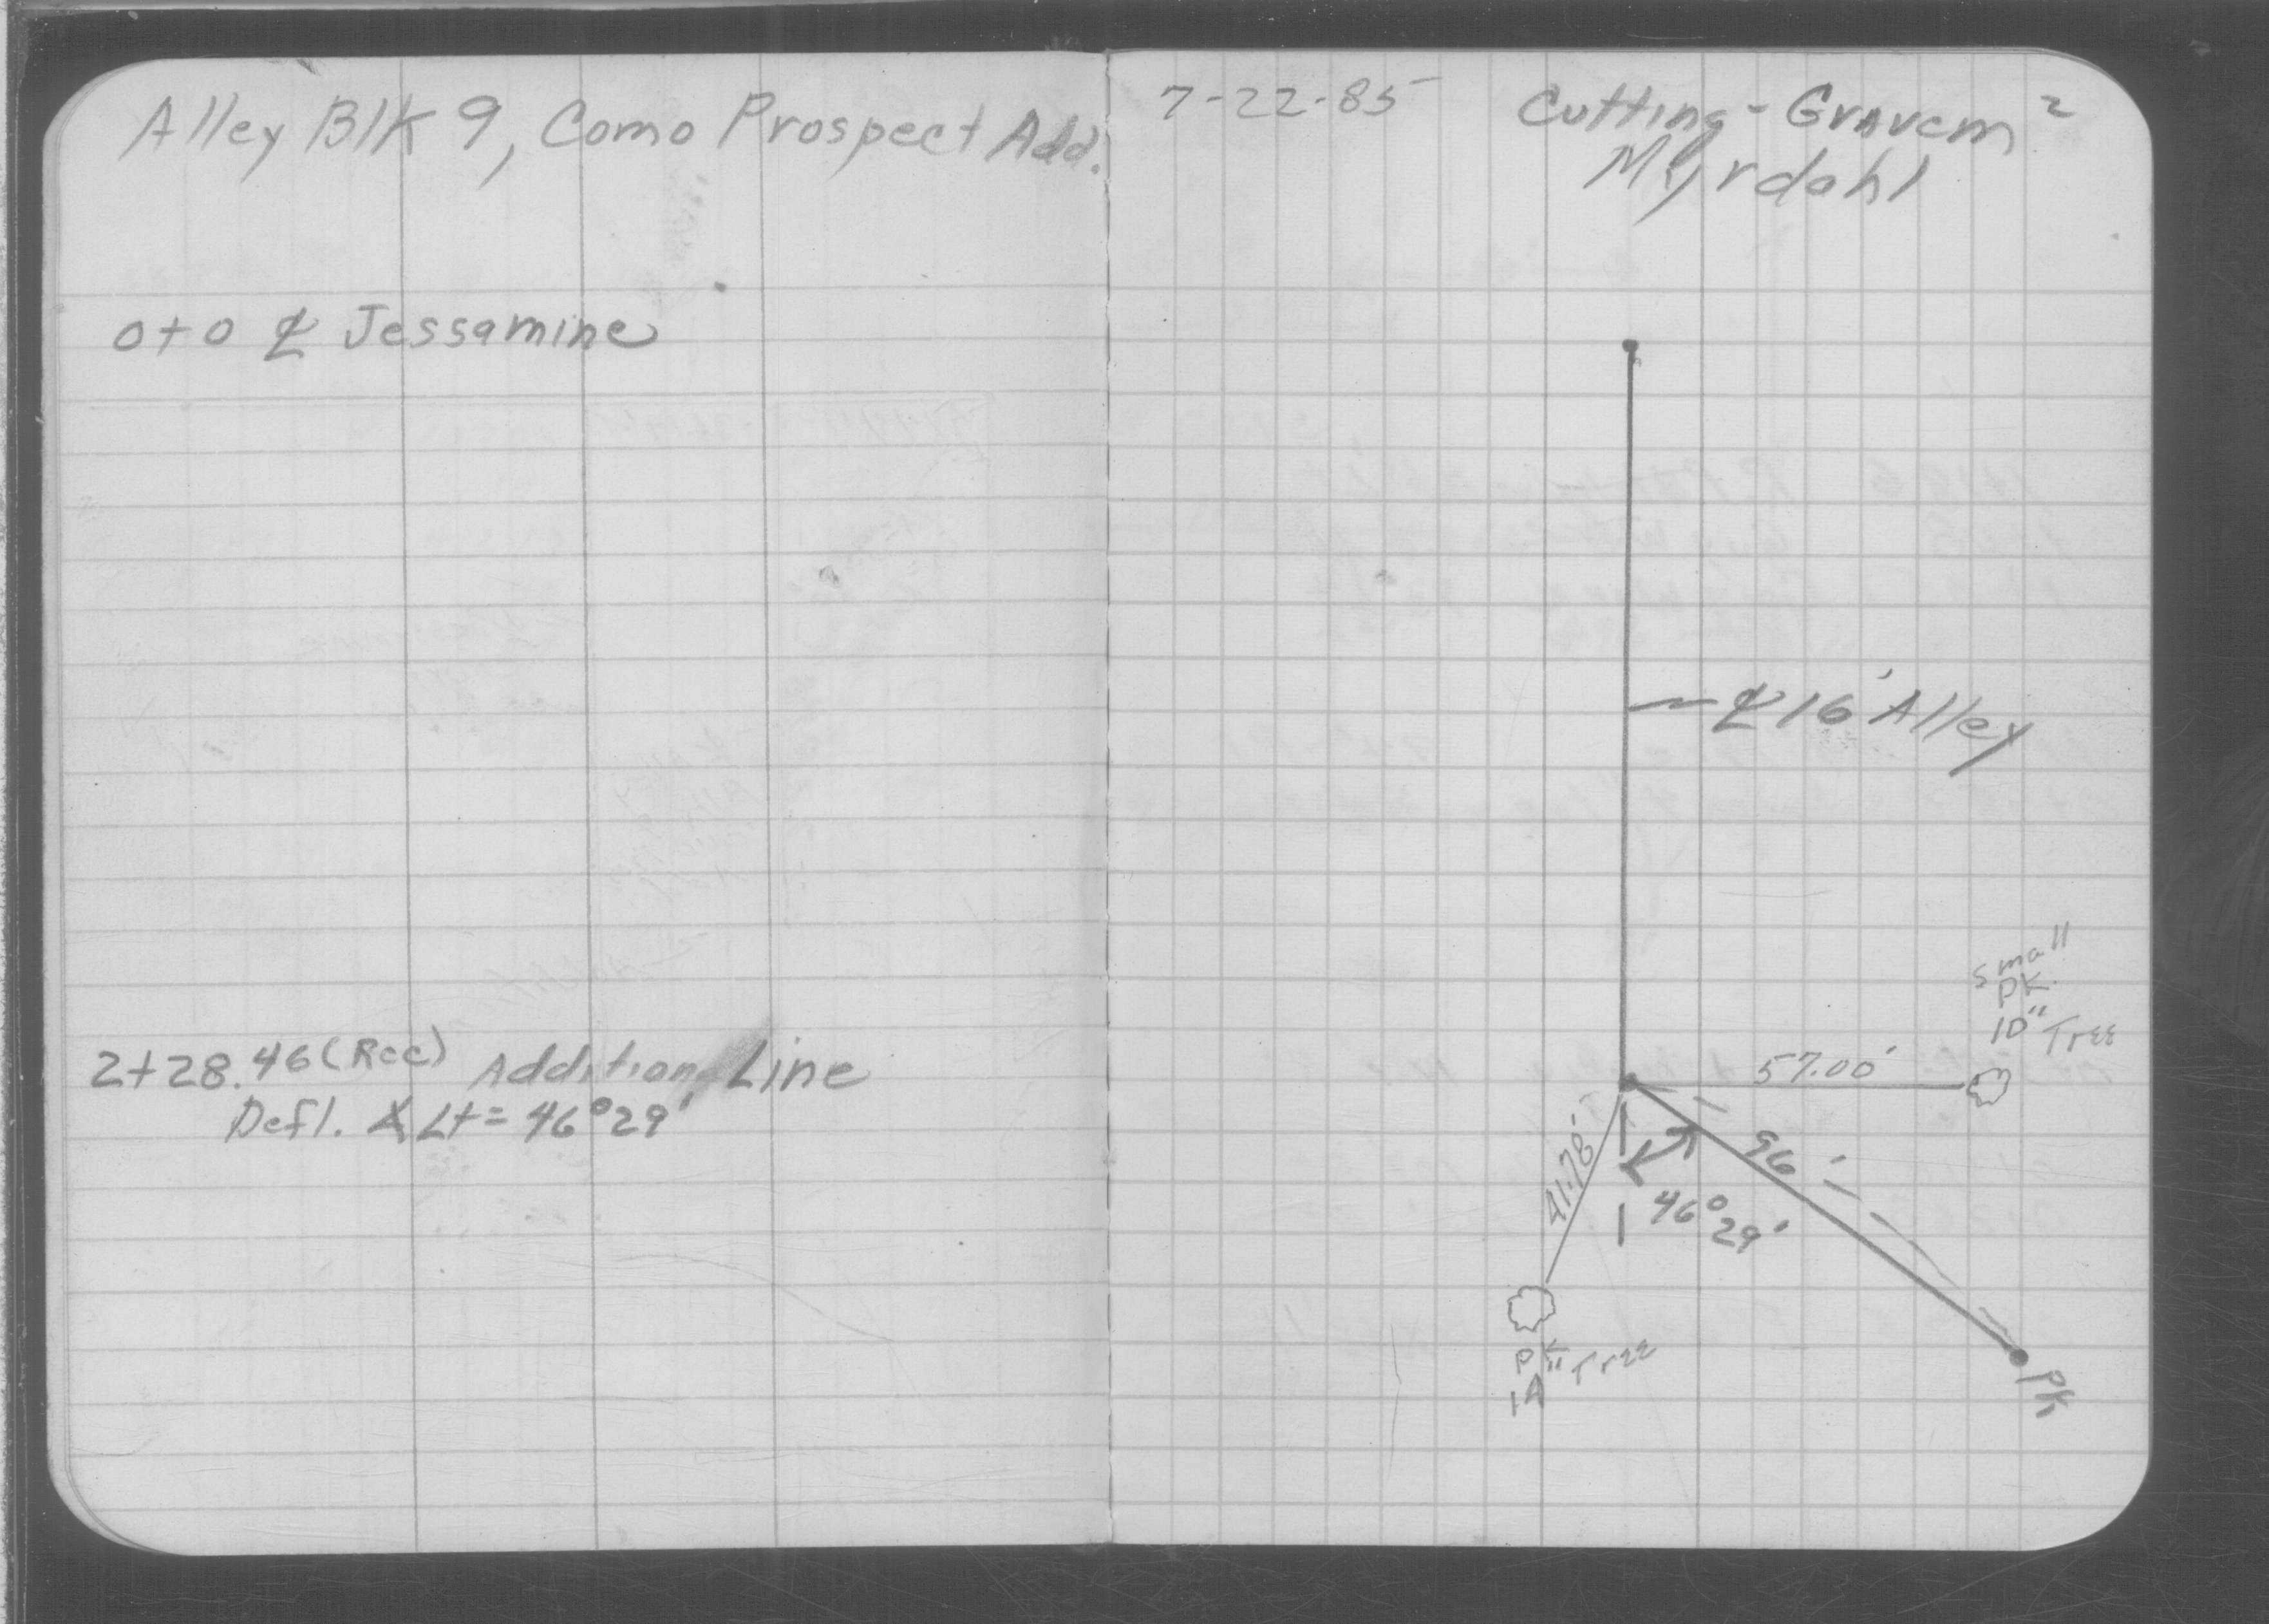 Alley Blk 9, Como Prospect Add.
0+0 ℄ Jessamine
2+28.46 (Rec) Addition Line
Defl. ∡ Lt = 46°29'
7-22-85
Cutting - Gravem
Myrdahl
℄ 16' Alley
small
PK
10" Tree
57.00'
41.78'
96'
46°
29'
PK
14" Tree
PK